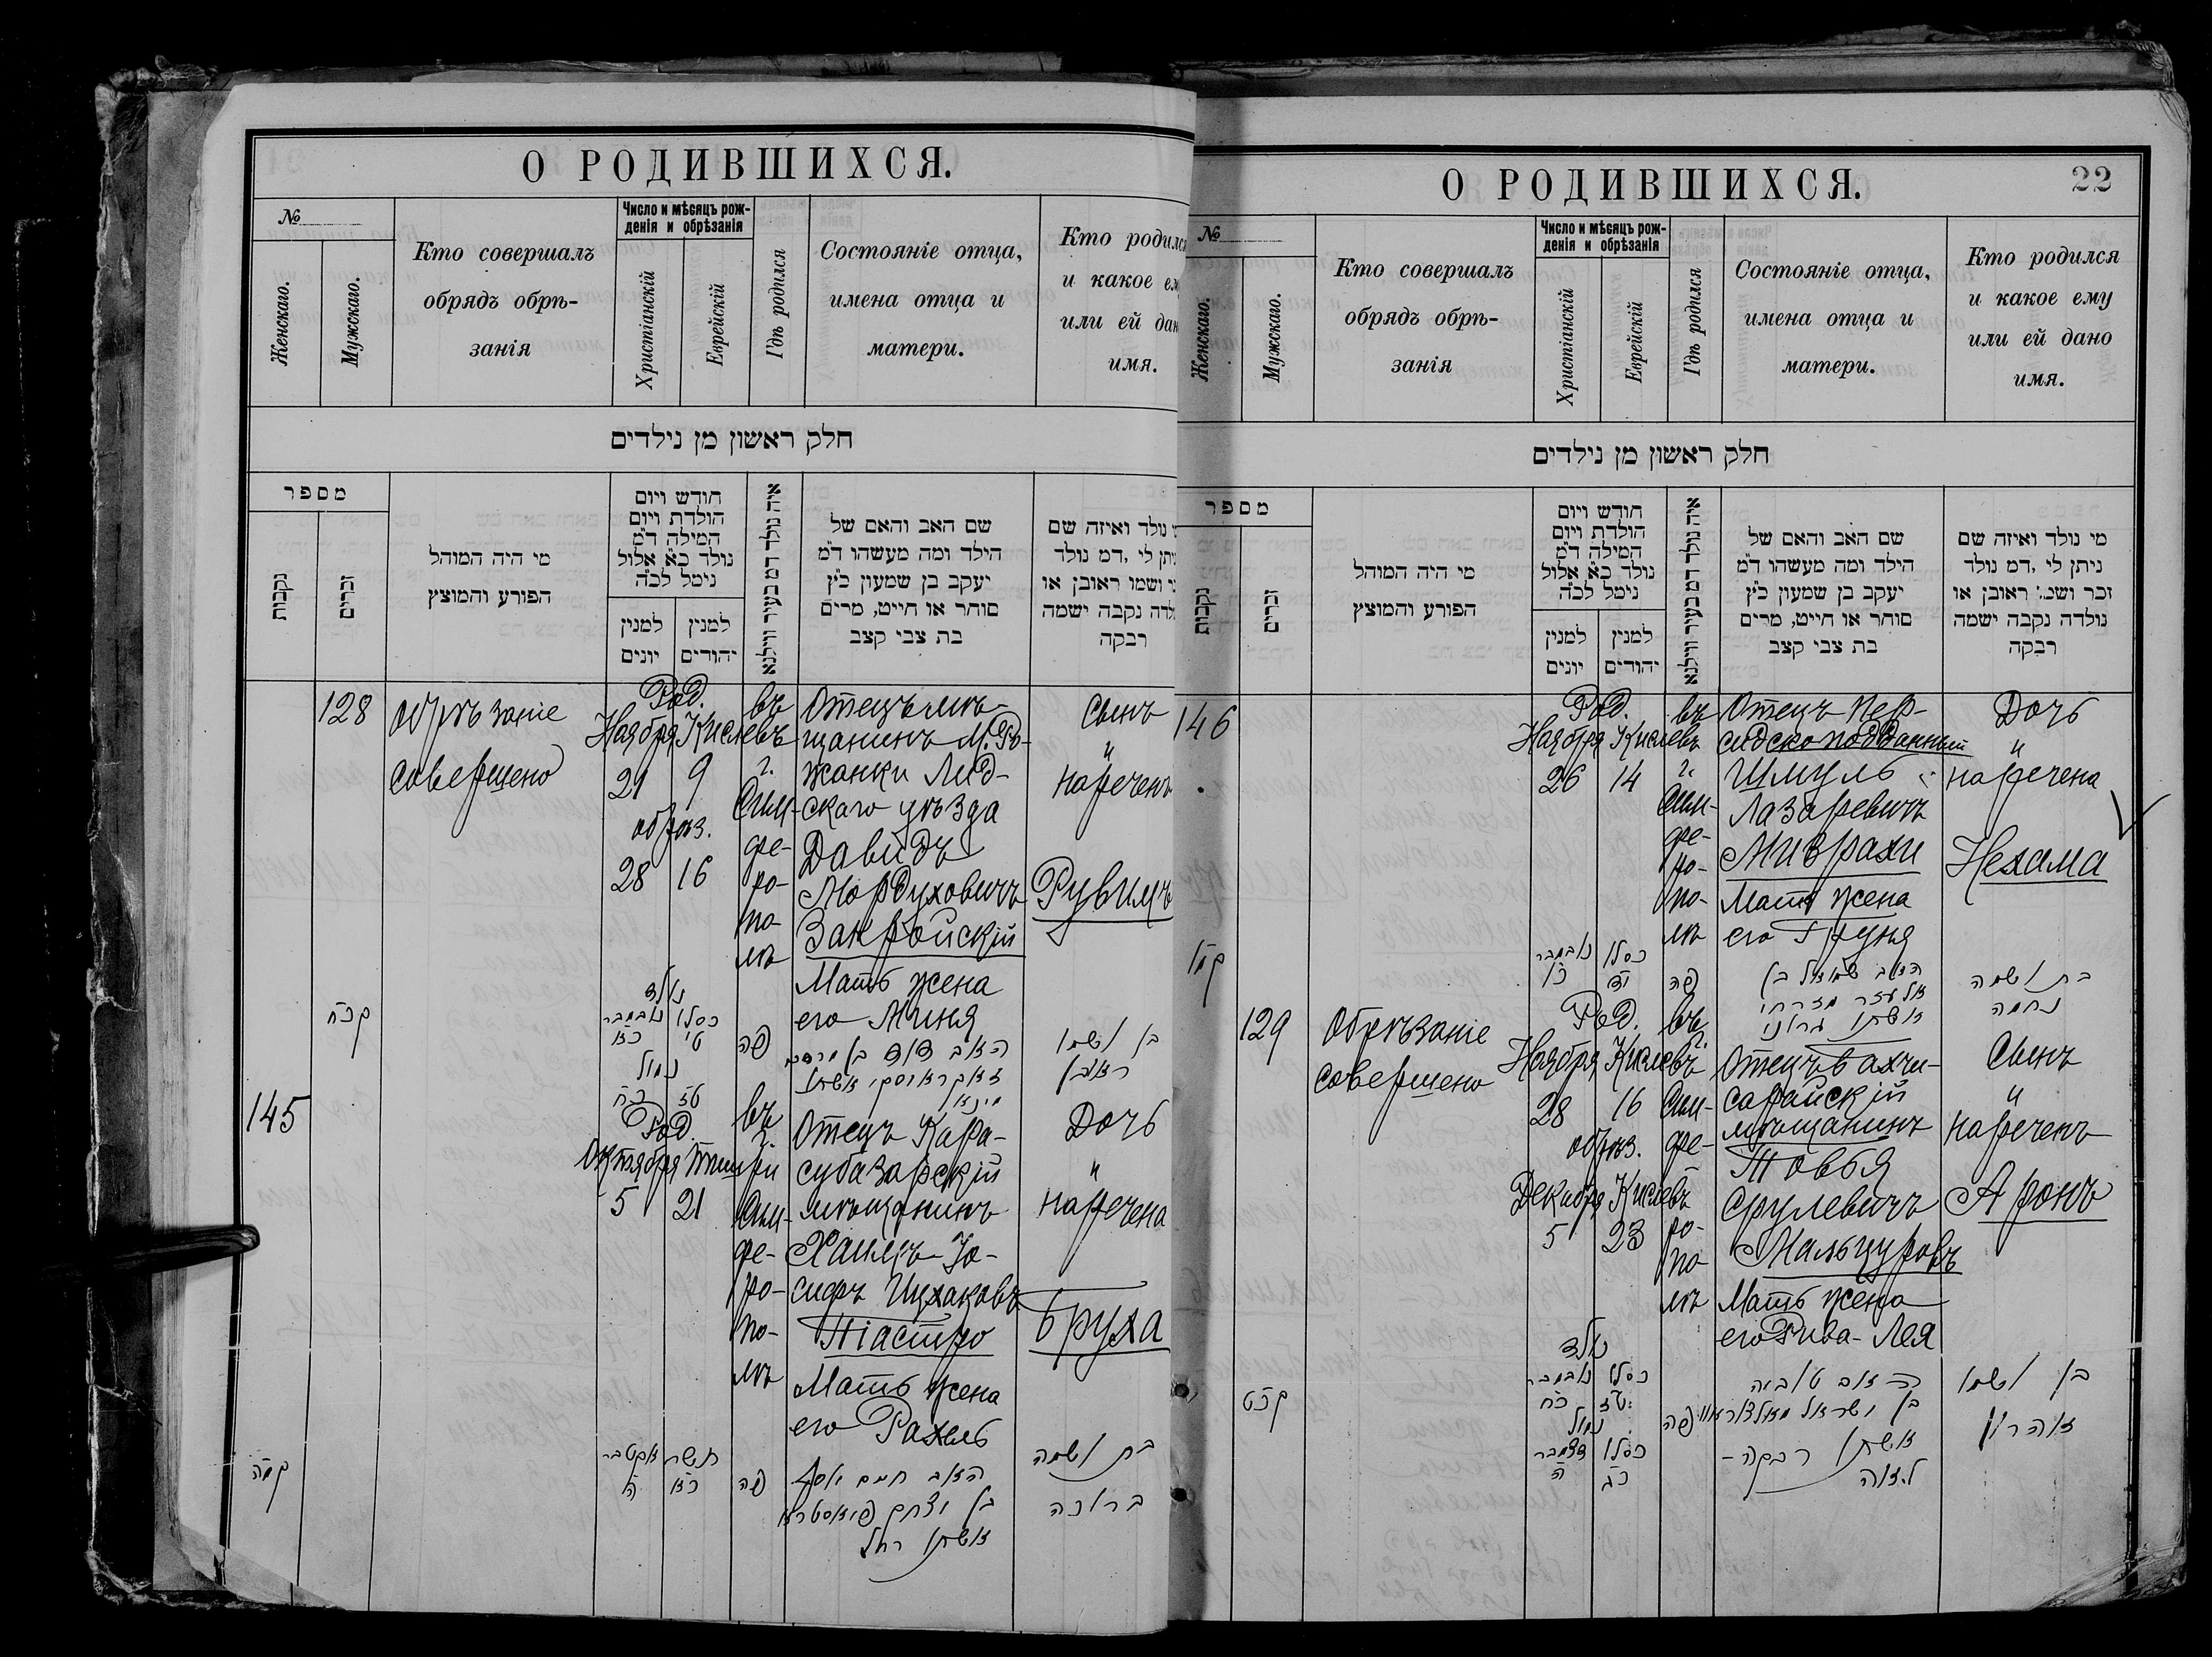 О РОДИВШИХСЯ.
№
Женскаго.
Мужскаго.
Кто совершалъ
обрядъ обрѣ-
занія
Число и мѣсяцъ рож-
денія и обрѣзанія
Христіанскій
Еврейскій
Гдѣ родился
Состояніе отца,
имена отца и
матери.
Кто родился
и какое ему
или ей дано
имя.
חלק ראשון מן נילדים
מספר
נקבות
זכרים
מי היה המוהל
הפורע והמוצץ
חודש ויום
הולדת ויום
המילה ד"מ
נולד כ"א אלול
נימל לכ"ה
למנין
יונים
למנין
יהודים
איה נולד דמ בעיר ווילנא
שם האב והאם של
הילד ומה מעשהו ד"מ
יעקב בן שמעון כ"ץ
סוחר או חייט, מרים
בת צבי קצב
נולד ואיזה שם
ניתן לי, דמ נולד
ושמו ראובן או
נולדה נקבה ישמה
רבקה
128
обрѣзаніе
совершено
Род.
Ноября Кислевъ
21 9
обрѣз.
28 16
въ
г.
Сим-
фе-
ро-
по-
лѣ
Отецъ мѣ-
щанинъ м. Ро-
жанки Лид-
скаго уѣзда
Давидъ
Мордуховичъ
Закройскій
Мать жена
его Миня
Сынъ
"
нареченъ
Рувимъ
קכח
נולד
כסלו נובמבר
נמול
פה
האב דוד בן מרדכי
זאקראיסקי אשתו
מינא
בן ושמו
ראובן
145
Род.
Октября Тишри
5 21
въ
г.
Сим-
фе-
ро-
по-
лѣ
Отецъ Кара-
субазарскій
мѣщанинъ
Хаимъ-Іо-
сифъ Ицхаковъ
Піастро
Мать жена
его Рахель
Дочь
"
наречена
Бруха
קמה
תשרי אקטבר
כא ה
פה
האב חיים יוסף
בן יצחק פיאסטרא
אשתו רחל
בת ושמה
ברוכה
О РОДИВШИХСЯ.
22
№
Женскаго.
Мужскаго.
Кто совершалъ
обрядъ обрѣ-
занія
Число и мѣсяцъ рож-
денія и обрѣзанія
Христіанскій
Еврейскій
Гдѣ родился
Состояніе отца,
имена отца и
матери.
Кто родился
и какое ему
или ей дано
имя.
חלק ראשון מן נילדים
מספר
נקבות
זכרים
מי היה המוהל
הפורע והמוצץ
חודש ויום
הולדת ויום
המילה ד"מ
נולד כ"א אלול
נימל לכ"ה
למנין
יונים
למנין
יהודים
איה נולד דמ בעיר ווילנא
שם האב והאם של
הילד ומה מעשהו ד"מ
יעקב בן שמעון כ"ץ
סוחר או חייט, מרים
בת צבי קצב
מי נולד ואיזה שם
ניתן לי, דמ נולד
זכר ושמו ראובן או
נולדה נקבה ישמה
רבקה
146
Род.
Ноября Кислевъ
26 14
въ
г.
Сим-
фе-
ро-
по-
лѣ
Отецъ пер-
сидскоподданный
Шмуль
Лазаревичъ
Мизрахи
Мать жена
его Груня
Дочь
"
наречена
Нехама
קמו
כסלו נובמבר
יד כו
פה
האב שמואל בן
אלעזר מזרחי
אשתו גרוניו
בת ושמה
נחמה
129
Обрѣзаніе
совершено
Род.
Ноября Кислевъ
28 16
обрѣз.
Декабря Кислевъ
5 23
въ
г.
Сим-
фе-
ро-
по-
лѣ
Отецъ Бахчи-
сарайскій
мѣщанинъ
Товья
Срулевичъ
Мальцуровъ
Мать жена
его Рива-Лея
Сынъ
"
нареченъ
Аронъ
קכט
נולד
כסלו נובמבר
טז כח
נמול
כסלו דצמבר
כג ה
פה
האב טוביה
בן ישראל מאלצוראוו
אשתו רבקה-
לאה
בן ושמו
אהרון